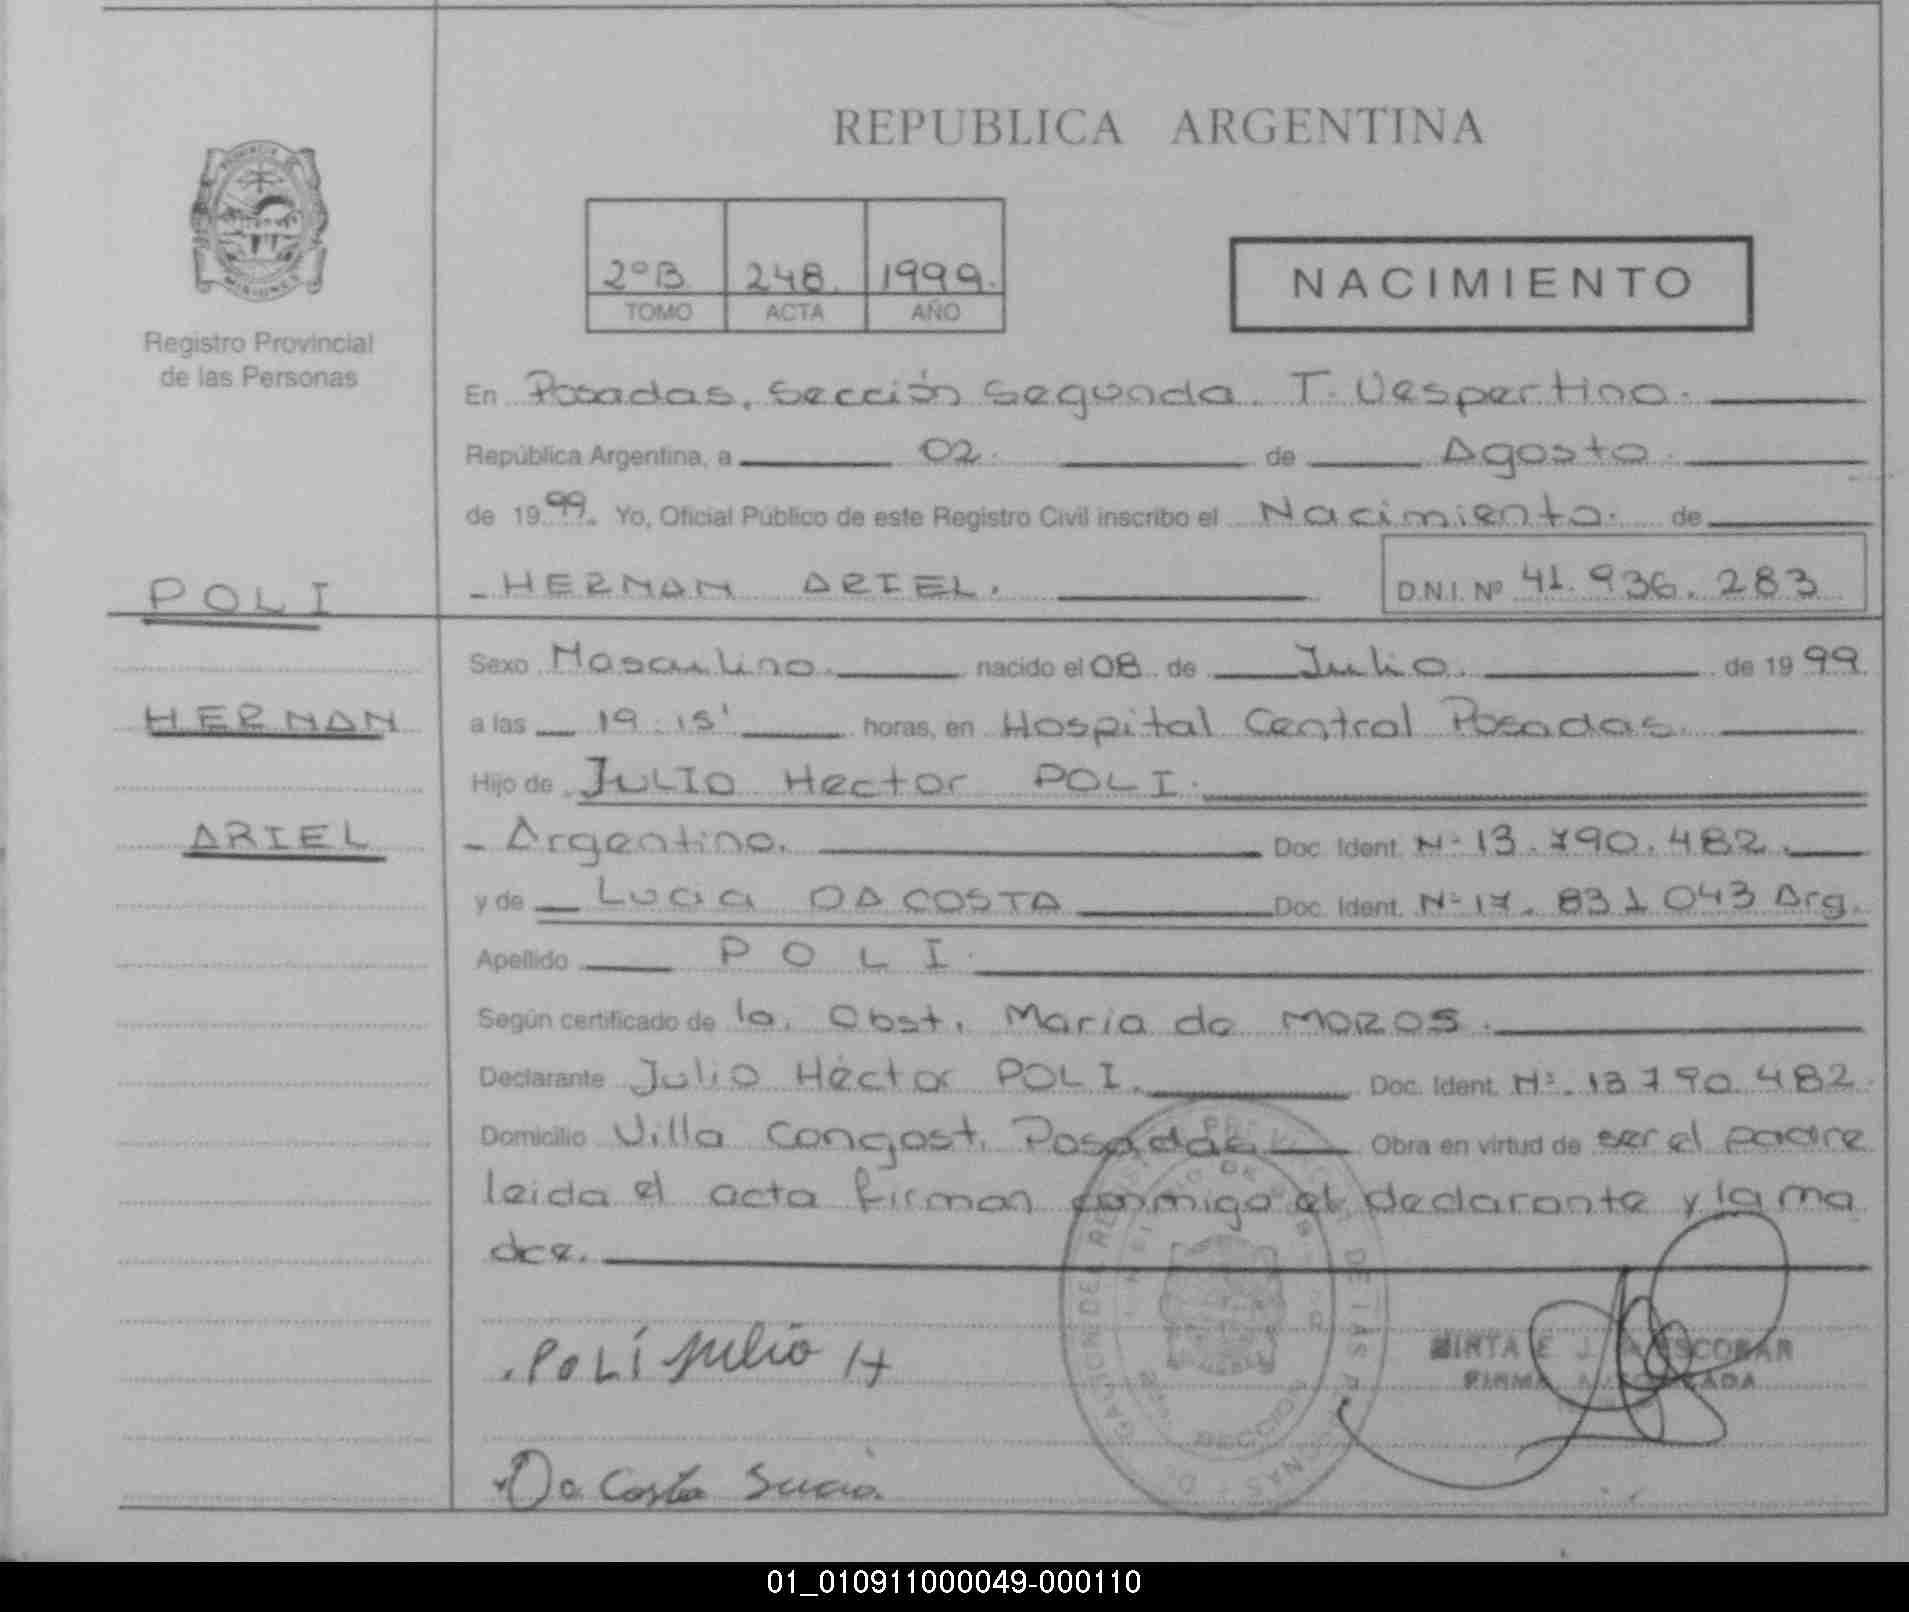 REPUBLICA ARGENTINA
2ºB. 248. 1999.
TOMO ACTA AÑO
NACIMIENTO
PROVINCIA DE
MISIONES
Registro Provincial
de las Personas
En Posadas, Sección Segunda. T. Vespertino.
República Argentina, a 02. de Agosto.
de 1999. Yo, Oficial Público de este Registro Civil inscribo el Nacimiento. de
- HERNAN ARIEL. D.N.I. Nº 41.936.283
POLI
HERNAN
ARIEL
Sexo Masculino. nacido el 08 de Julio. de 1999
a las 19:15' horas, en Hospital Central Posadas.
Hijo de JULIO Hector POLI.
- Argentino. Doc. Ident. Nº 13.790.482.
y de Lucia DA COSTA Doc. Ident. Nº 17.831043 Arg.
Apellido POLI.
Según certificado de la. Obst. Maria do MOROS.
Declarante Julio Héctor POLI. Doc. Ident. Nº. 13790482.
Domicilio Villa Congost. Posadas Obra en virtud de ser el padre
leida el acta firman conmigo el declarante y la ma
dre.
POLÍ Julio H
MIRTA E. J. ESCOBAR
FIRMA AUTORIZADA
Da Costa Lucia.
01_010911000049-000110